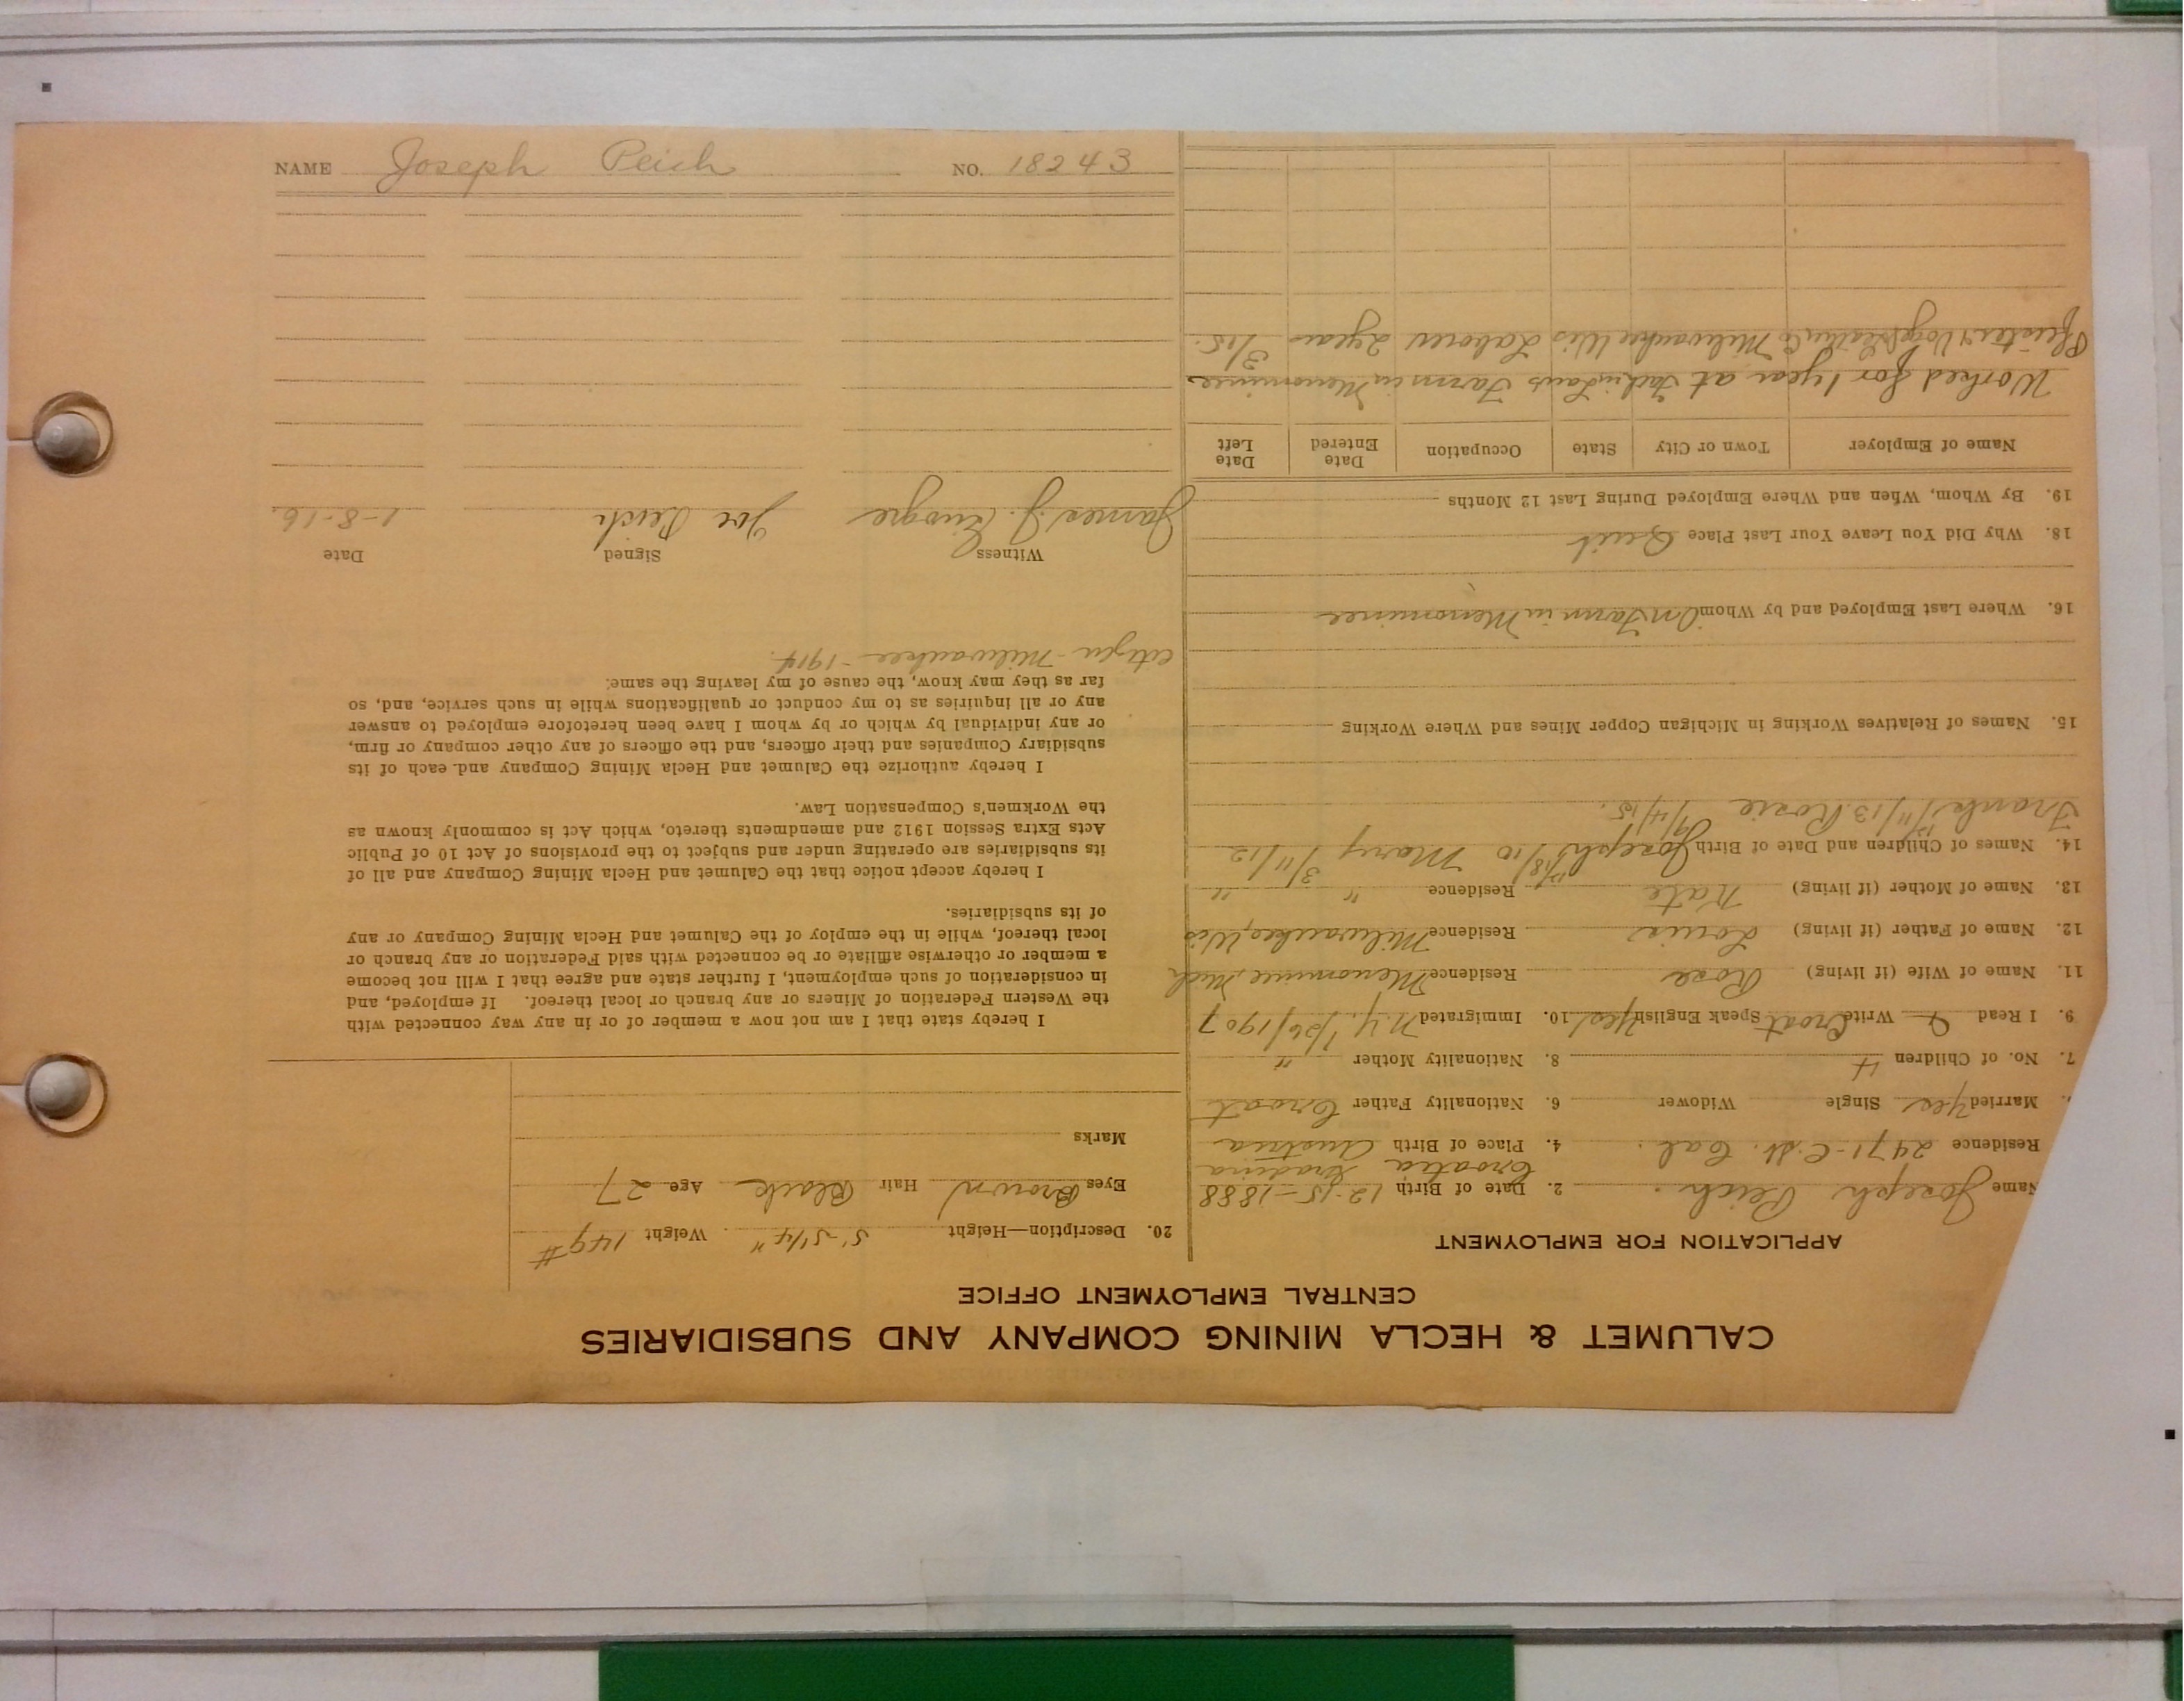 CALUMET & HECLA MINING COMPANY AND SUBSIDIARIES
CENTRAL EMPLOYMENT OFFICE
APPLICATION FOR EMPLOYMENT
Name Joseph Peich. 2. Date of Birth 12-15-1888
Croatia Gradina
Residence 2471-C. St. Cal. 4. Place of Birth Austria
Married Yes Single Widower 6. Nationality Father Croat
7. No. of Children 4 8. Nationality Mother "
9. I Read & Write Croat Speak English Yes 10. Immigrated N.Y. 1/26/1907
11. Name of Wife (if living) Rose Residence Menominee, Mich
12. Name of Father (if living) Louis Residence Milwaukee, Wis
13. Name of Mother (if living) Kate Residence " "
14. Names of Children and Date of Birth Joseph 12/8/10 Mary 3/11/12
Frank 12/11/13 Rosie 9/4/15.
15. Names of Relatives Working in Michigan Copper Mines and Where Working
16. Where Last Employed and by Whom On Farm in Menominee
18. Why Did You Leave Your Last Place Quit
19. By Whom, When and Where Employed During Last 12 Months
Name of Employer Town or City State Occupation Date Entered Date Left
Worked for 1 year at Farm in Menominee
Pfister & Vogel Leather Co Milwaukee Wis Laborer 2 years 3/15.
20. Description—Height 5'-5 1/4" Weight 149#
Eyes Brown Hair Black Age 27
Marks
I hereby state that I am not now a member of or in any way connected with
the Western Federation of Miners or any branch or local thereof. If employed, and
in consideration of such employment, I further state and agree that I will not become
a member or otherwise affiliate or be connected with said Federation or any branch or
local thereof, while in the employ of the Calumet and Hecla Mining Company or any
of its subsidiaries.
I hereby accept notice that the Calumet and Hecla Mining Company and all of
its subsidiaries are operating under and subject to the provisions of Act 10 of Public
Acts Extra Session 1912 and amendments thereto, which Act is commonly known as
the Workmen's Compensation Law.
I hereby authorize the Calumet and Hecla Mining Company and each of its
subsidiary Companies and their officers, and the officers of any other company or firm,
or any individual by which or by whom I have been heretofore employed to answer
any or all inquiries as to my conduct or qualifications while in such service, and, so
far as they may know, the cause of my leaving the same.
Citizen - Milwaukee - 1914.
Witness Signed Date
James J. Joe Peich 1-8-16.
NAME Joseph Peich NO. 18243